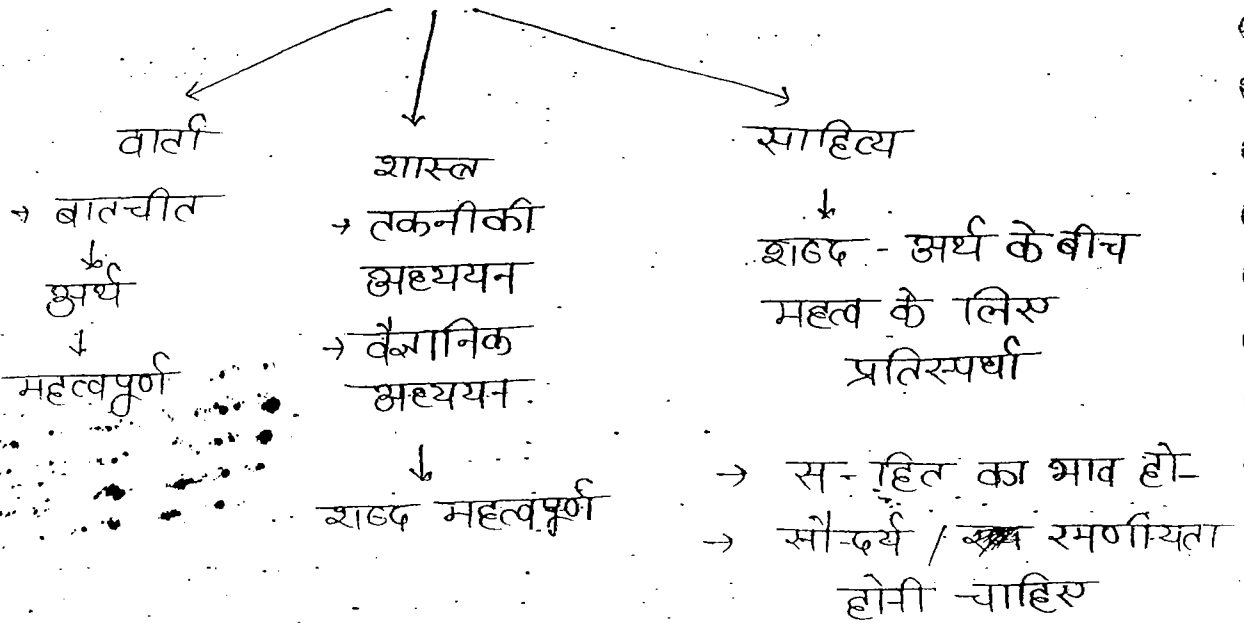 वार्ता
→ बातचीत
↓
अर्थ
↓
महत्वपूर्ण
शास्त्र
→ तकनीकी
अध्ययन
→ वैज्ञानिक
अध्ययन
↓
शब्द महत्वपूर्ण
साहित्य
↓
शब्द - अर्थ के बीच
महत्व के लिए
प्रतिस्पर्धा
→ स-हित का भाव हो-
→ सौन्दर्य / रमणीयता
होनी चाहिए